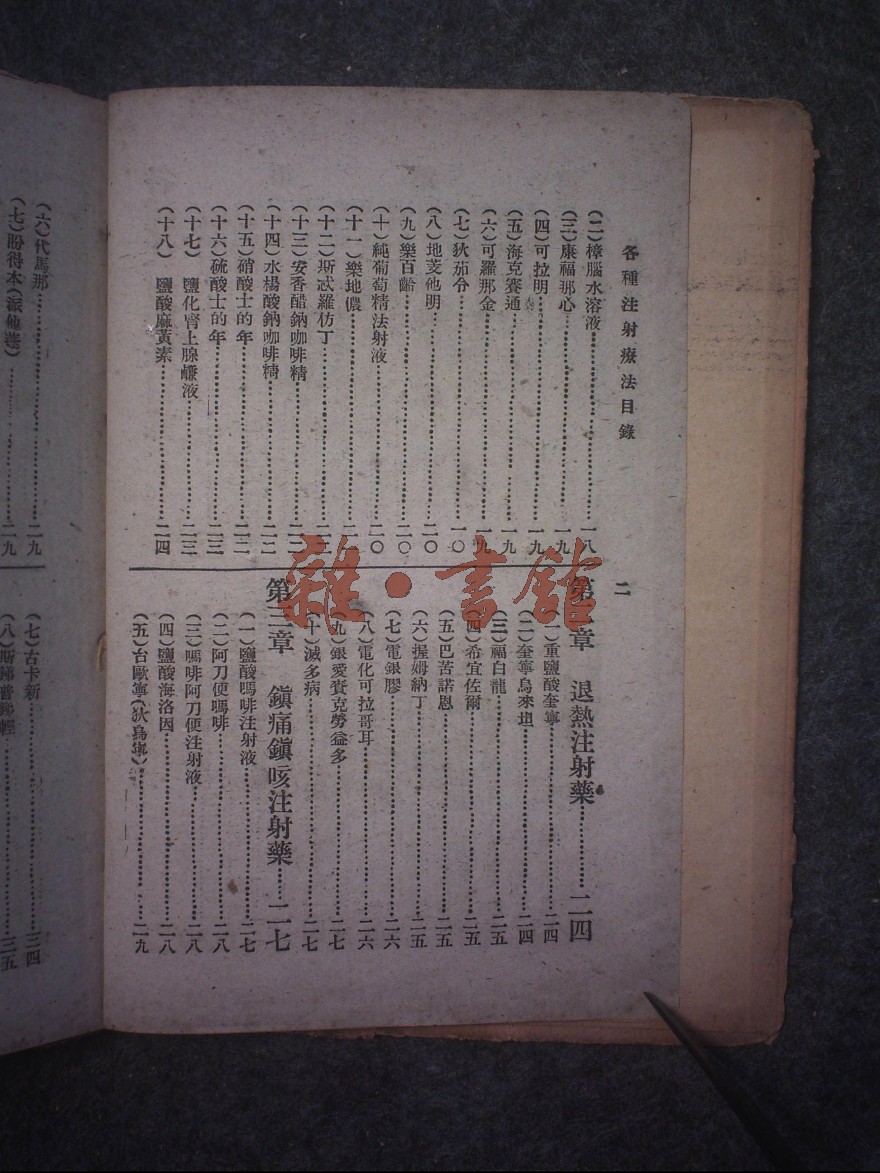 各種注射療法目錄
二
(二)樟腦水溶液……一八
(三)康福那心……一九
(四)可拉明……一九
(五)海克賽通……一九
(六)可羅那金……一九
(七)狄茄兮……一〇
(八)地芰他明……二〇
(九)樂百齡……二〇
(十)純葡萄精法射液……二〇
(十一)樂地儂……二
(十二)斯忒羅仿丁……二二
(十三)安香醋鈉咖啡精……二二
(十四)水楊酸鈉咖啡精……二二
(十五)硝酸士的年……二二
(十六)硫酸士的年……二三
(十七)鹽化腎上腺鹻液……二三
(十八)鹽酸麻黃素……二四
第二章 退熱注射藥……二四
(一)重鹽酸奎寧……二四
(二)奎寧烏來坦……二四
(三)福白龍……二五
(四)希宜佐爾……二五
(五)巴苦諾恩……二五
(六)握姆納丁……二五
(七)電銀膠……二六
(八)電化可拉哥耳……二六
(九)銀愛賚克勞益多……二七
(十)滅多病……二七
第三章 鎮痛鎮咳注射藥……二七
(一)鹽酸嗎啡注射液……二七
(二)阿刀便嗎啡……二八
(三)嗎啡阿刀便注射液……二八
(四)鹽酸海洛因……二八
(五)台歐寧(狄烏寧)……二九
(六)代馬那……二九
(七)盼得本……二九
(七)古卡新……三四
(八)……三五
雜·書館